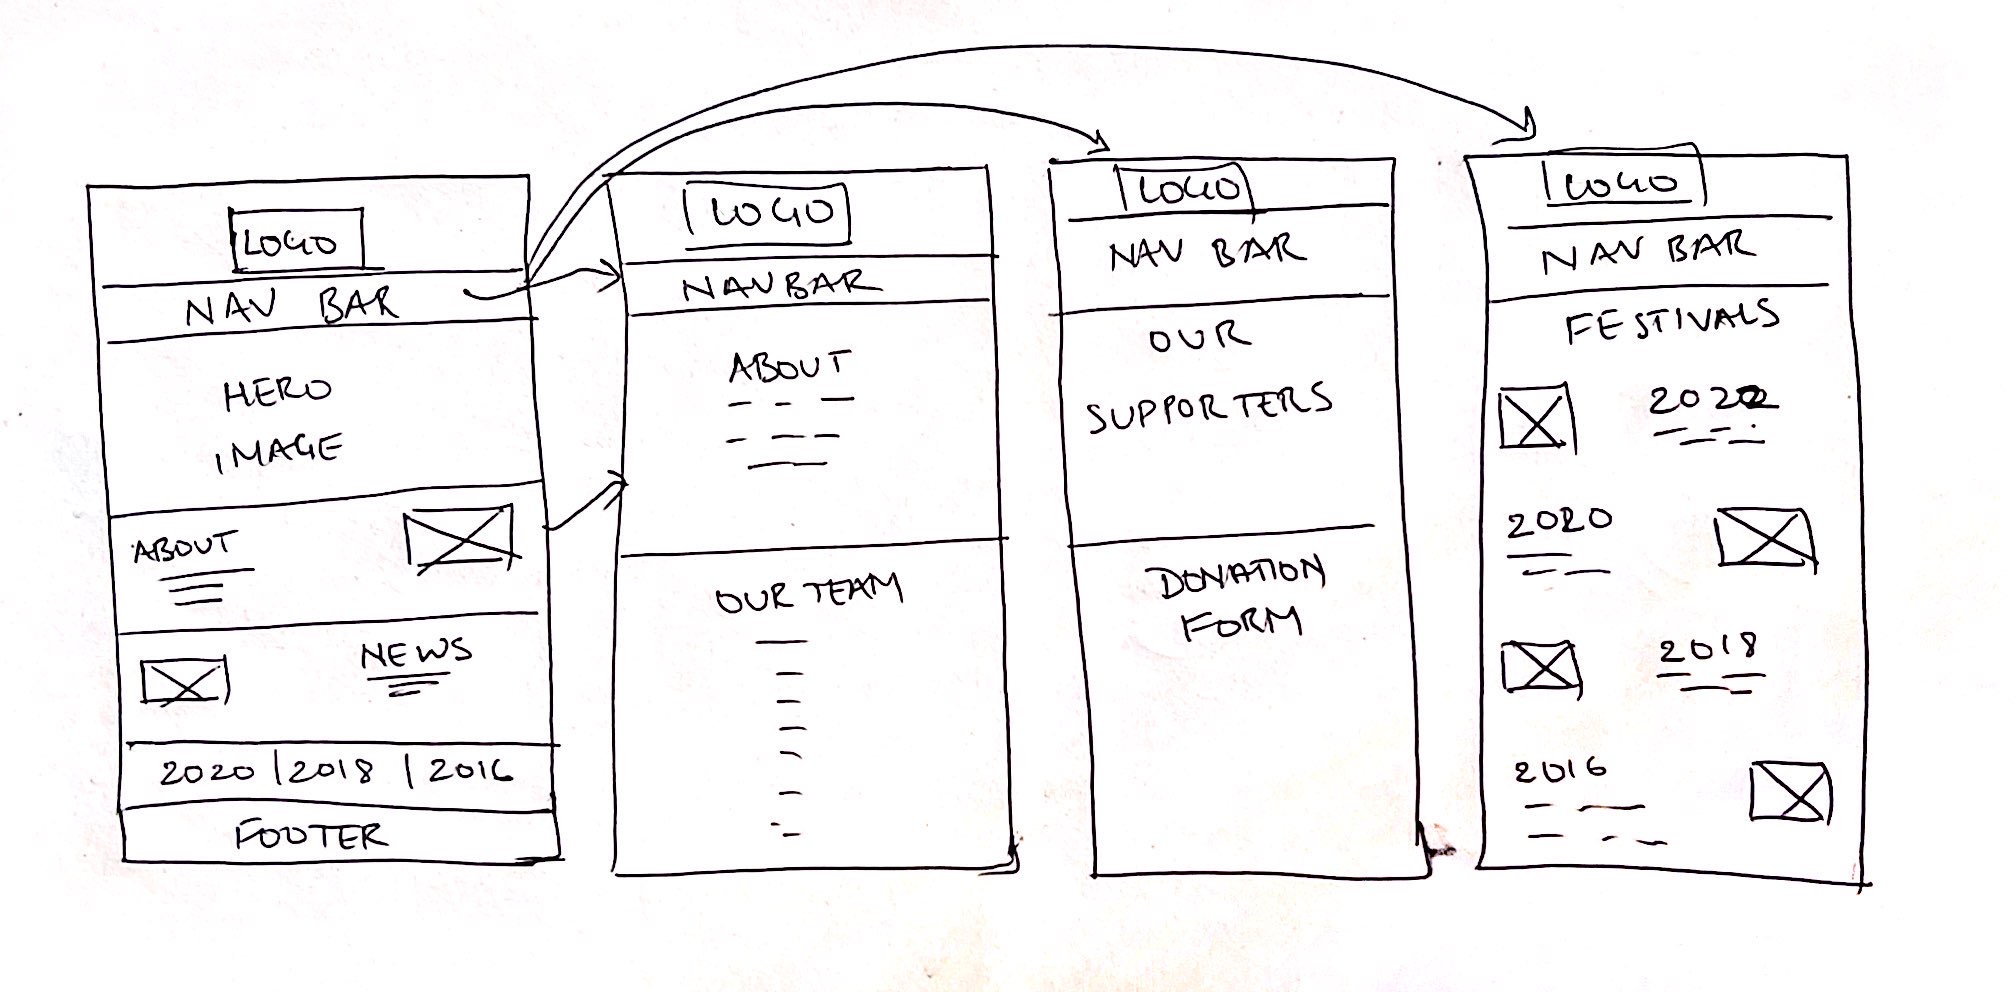 LOGO
NAV BAR
HERO
IMAGE
ABOUT
NEWS
2020 | 2018 | 2016
FOOTER
LOGO
NAVBAR
ABOUT
OUR TEAM
LOGO
NAV BAR
OUR
SUPPORTERS
DONATION
FORM
LOGO
NAV BAR
FESTIVALS
2022
2020
2018
2016